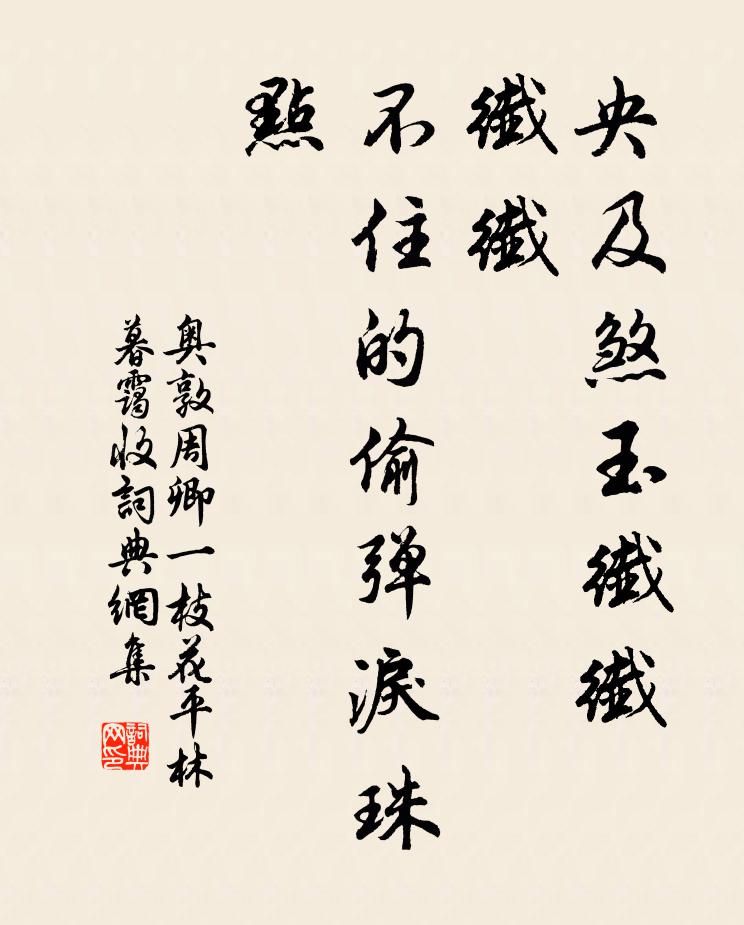 央及煞玉纖纖
纖纖
不住的偷弹淚珠
點
奥敦周卿一枝花平林
暮靄收詞典網集
詞典网印